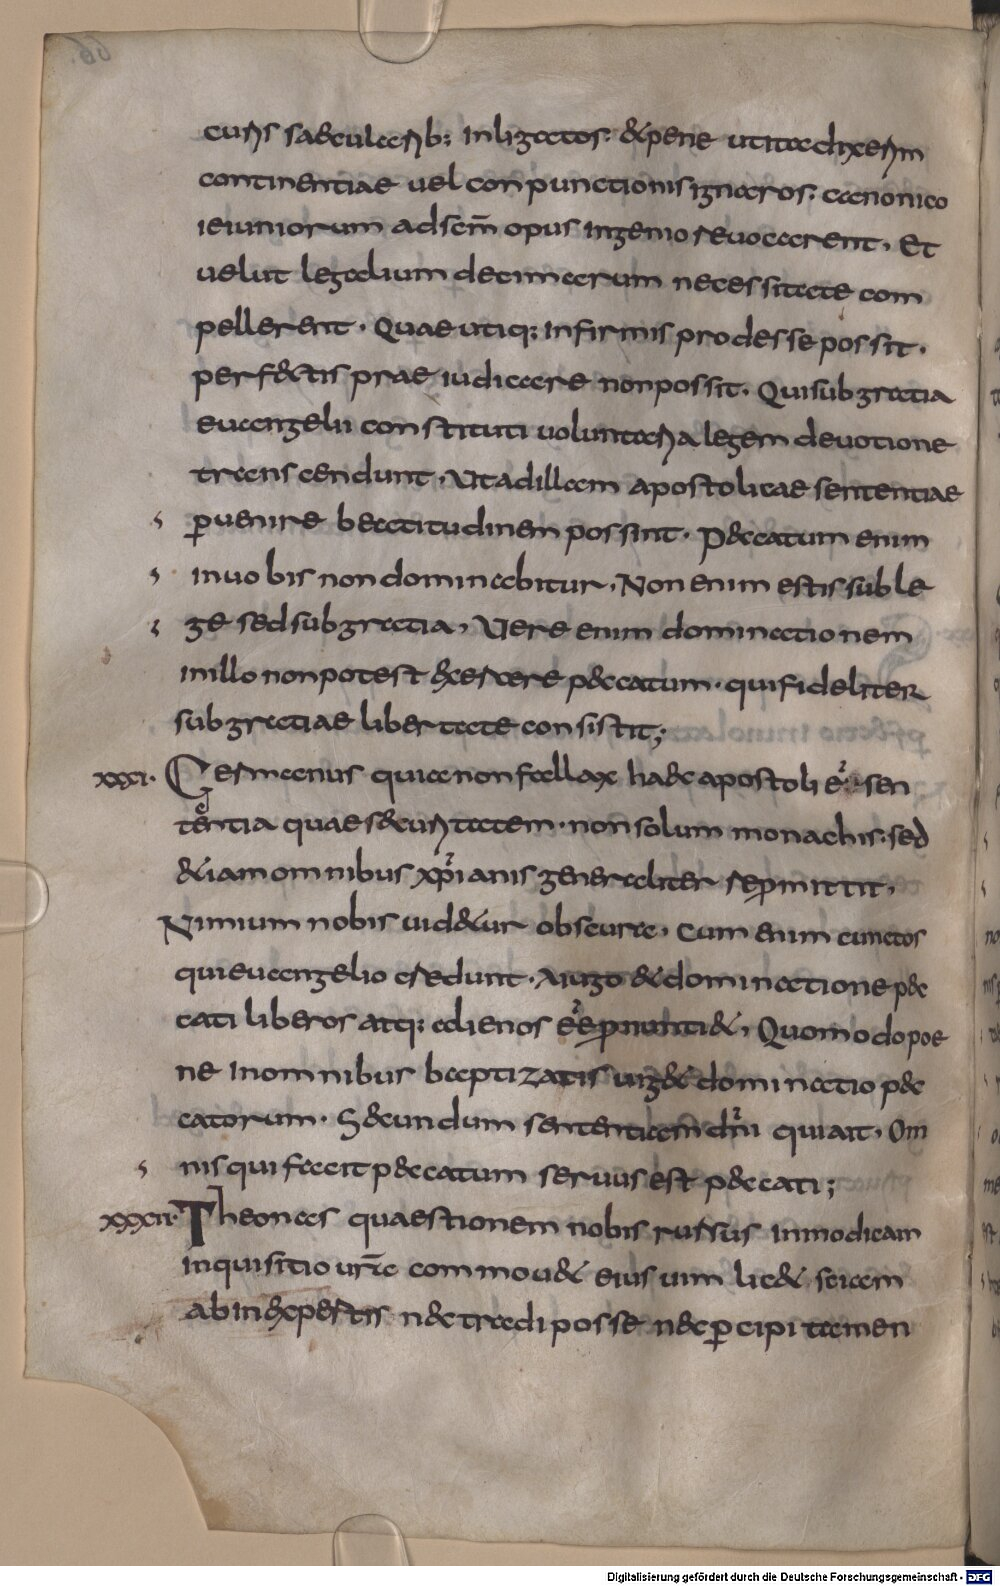 curis saecularib; inligatos. &pene ut ita dixerim
continentiae uel conpunctionis ignaros. canonica
ieiuniorum ad scm̄ opus ingenio reuocarent. Et
uelut legalium decimarum necessitate com
pellerent. Quae utiq; infirmis prodesse possit.
perfectis prae iudicare non possit. Qui sub gratia
euangelii constituti uoluntaria legem deuotione
transcendunt. Ut ad illam apostolicae sententiae
ꝑuenire beatitudinem possint. Peccatum enim
in uobis non dominabitur. Non enim estis sub le
ge sed sub gratia. Vere enim dominationem
in illo non potest exercere peccatum. qui fideliter
sub gratiae libertate consistit;
xxxi. Germanus quia non fallax haec apostoli ē sen
tentia quae securitatem. non solum monachis. sed
&iam omnibus xp̄ianis generaliter repmittit.
Nimium nobis uid&ur obscura. Cum enim cunctos
qui euangelio credunt. A iugo & dominatione pec
cati liberos atq; alienos ēē pnunti&. Quomodo poe
ne in omnibus baptizatis uig& dominatio pec
catorum. Secundum sententiam dn̄i qui ait. Om
nis qui facit peccatum seruus est peccati;
xxxii. Theonas quaestionem nobis rursus inmodicam
inquisitio ur̄a commou& eius uim lic& sciam
ab inexpertis nec tradi posse nec ꝑcipi tamen
Digitalisierung gefördert durch die Deutsche Forschungsgemeinschaft - DFG